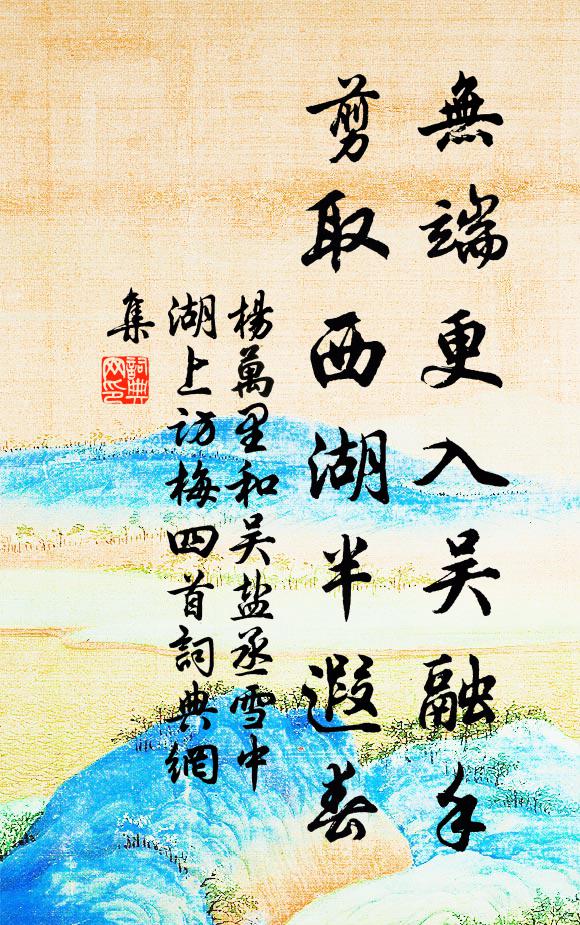 無端更入吴融手
剪取西湖半遐春
楊萬里和吴盐丞雪中
湖上访梅四首詞典網
集
詞典
网印